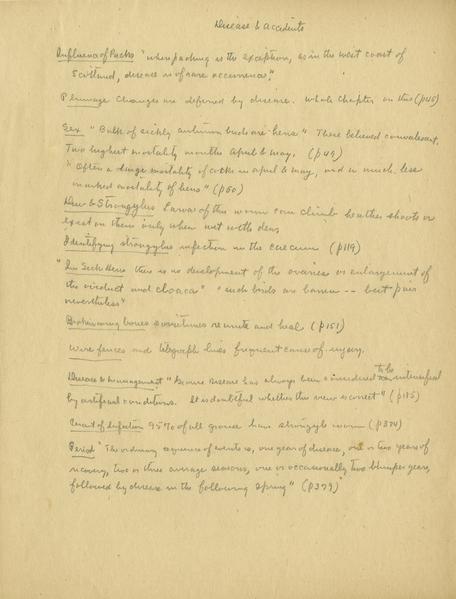 Disease & Accidents
Influence of Packs "when packing is the exception, as in the west coast of
Scotland, disease is of rare occurrence."
Plumage changes are deferred by disease. Whole chapter on this (p45)
Sex "Bulk of sickly autumn birds are hens" These believed convalescent.
Two highest mortality months April & May. (p49)
"Often a large mortality of cocks in april & may, and a much less
marked mortality of hens" (p50)
Dew & Strongylus Larva of the worm can climb heather shoots or
exist on them only when wet with dew,
Identifying strongylus infection in the caecum (p119)
"In Sick Hens there is no development of the ovaries or enlargement of
the oviduct and cloaca" "such birds are barren -- but pair
nevertheless"
Broken wing bones sometimes reunite and heal (p151)
Wire fences and telegraph lines frequent cause of injury.
Disease & Management "Grouse disease has always been considered to be intensified
by artificial conditions. It is doubtful whether this view is correct" (p185)
Extent of Infection 95% of all grouse have strongyle worm (p374)
Period "The ordinary sequence of events is, one year of disease, one or two years of
recovery, two or three average seasons, one or occasionally two bumper years,
followed by disease in the following spring" (p379)